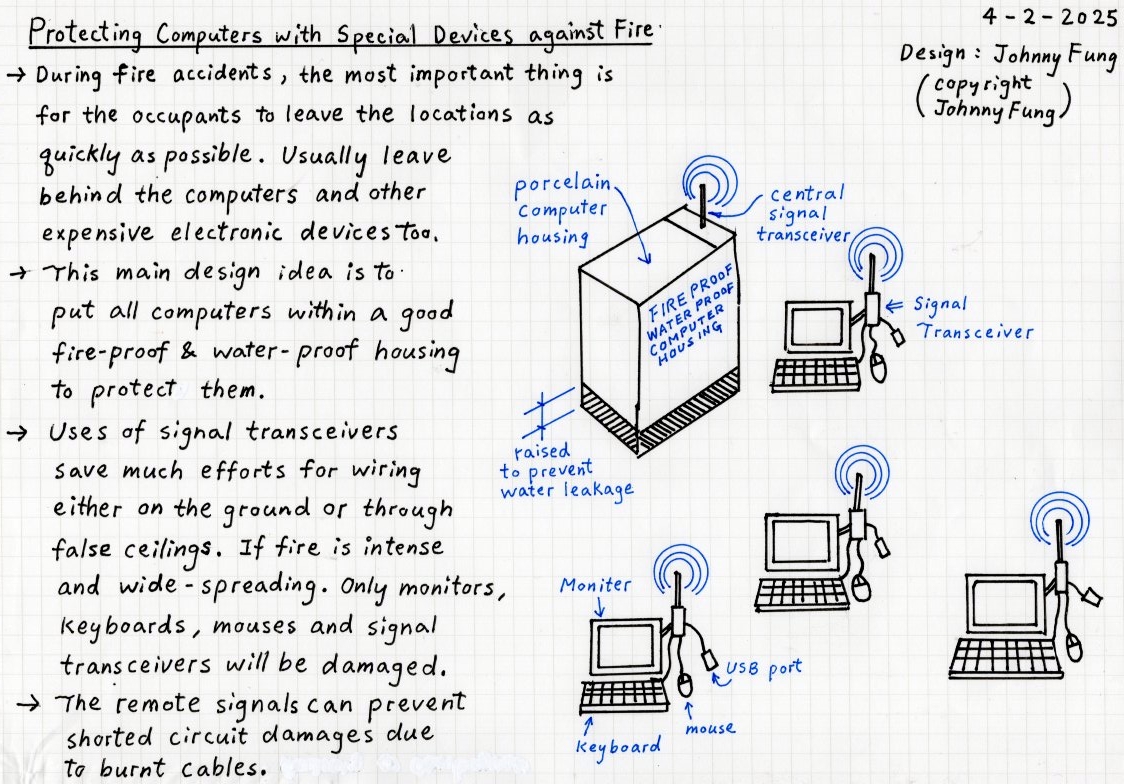 Protecting Computers with Special Devices against Fire
4-2-2025
Design : Johnny Fung
(copyright
Johnny Fung)
→ During fire accidents, the most important thing is
for the occupants to leave the locations as
quickly as possible. Usually leave
behind the computers and other
expensive electronic devices too.
→ This main design idea is to
put all computers within a good
fire-proof & water-proof housing
to protect them.
→ Uses of signal transceivers
save much efforts for wiring
either on the ground or through
false ceilings. If fire is intense
and wide-spreading. Only monitors,
keyboards, mouses and signal
transceivers will be damaged.
→ The remote signals can prevent
shorted circuit damages due
to burnt cables.
porcelain
computer
housing
central
signal
transceiver
FIRE PROOF
WATER PROOF
COMPUTER
HOUSING
Signal
Transceiver
raised
to prevent
water leakage
Moniter
USB port
mouse
Keyboard